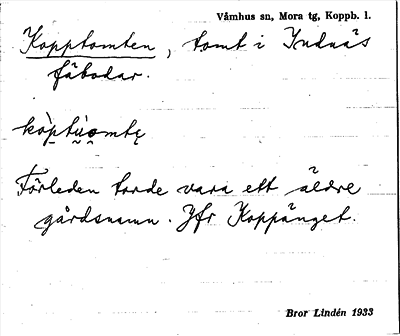 Våmhus sn, Mora tg, Koppb. l.
Kopptomten, tomt i Indnäs
fäbodar.
kòp̠tù̮o̮mtę
Förleden torde vara ett äldre
gårdsnamn. Jfr Koppänget.
Bror Lindén 1933